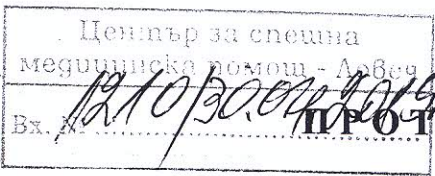 Център за спешна
медицинска помощ - Ловеч
Вх. № 1210/
ПРОТ